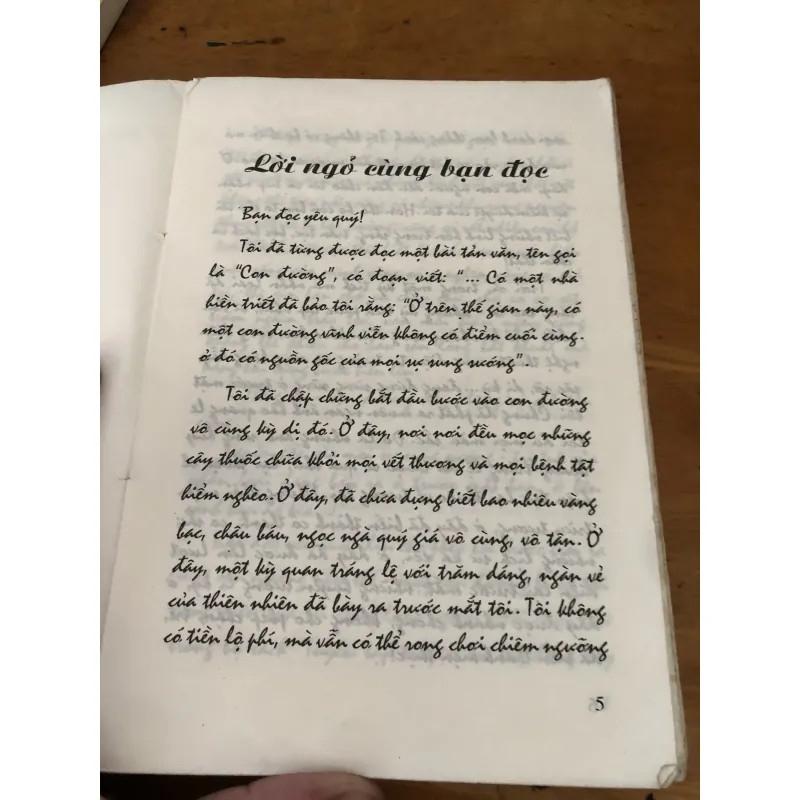 Lời ngỏ cùng bạn đọc
Bạn đọc yêu quý!
Tôi đã từng được đọc một bài tản văn, tên gọi
là "Con đường", có đoạn viết: "... Có một nhà
hiền triết đã bảo tôi rằng: "Ở trên thế gian này, có
một con đường vĩnh viễn không có điểm cuối cùng.
ở đó có nguồn gốc của mọi sự sung sướng".
Tôi đã chập chững bắt đầu bước vào con đường
vô cùng kỳ dị đó. Ở đây, nơi nơi đều mọc những
cây thuốc chữa khỏi mọi vết thương và mọi bệnh tật
hiểm nghèo. Ở đây, đã chứa đựng biết bao nhiêu vàng
bạc, châu báu, ngọc ngà quý giá vô cùng, vô tận. Ở
đây, một kỳ quan tráng lệ với trăm dáng, ngàn vẻ
của thiên nhiên đã bày ra trước mắt tôi. Tôi không
có tiền lộ phí, mà vẫn có thể rong chơi chiêm ngưỡng
5